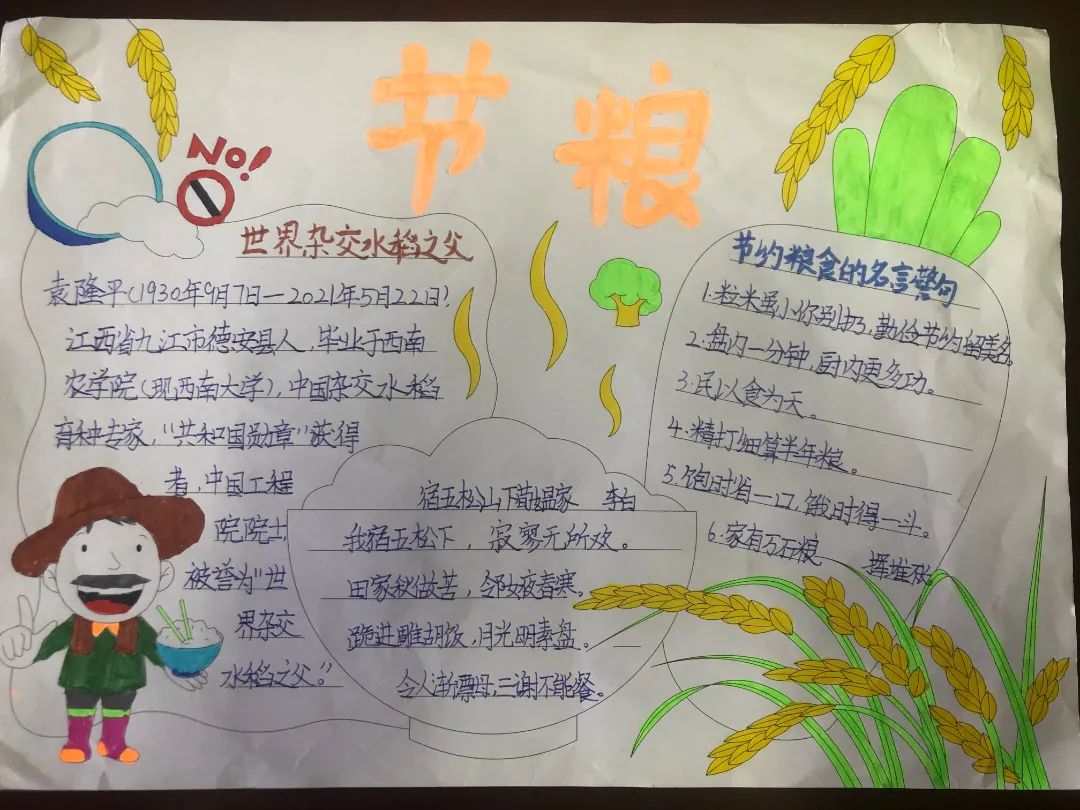 节粮
No!
世界杂交水稻之父
袁隆平(1930年9月7日—2021年5月22日)
江西省九江市德安县人,毕业于西南
农学院(现西南大学),中国杂交水稻
育种专家,"共和国勋章"获得
者,中国工程
院院士,
被誉为"世
界杂交
水稻之父。"
宿五松山下荀媪家 李白
我宿五松下,寂寥无所欢。
田家秋做苦,邻女夜舂寒。
跪进雕胡饭,月光明素盘。
令人渐漂母,三谢不能餐。
节约粮食的名言警句
1.粒米虽小你别扔,勤俭节约留美名
2.盘内一分钟,厨内更多功。
3.民以食为天。
4.精打细算半年粮。
5.饱时省一口,饿时得一斗。
6.家有万石粮 挥堆